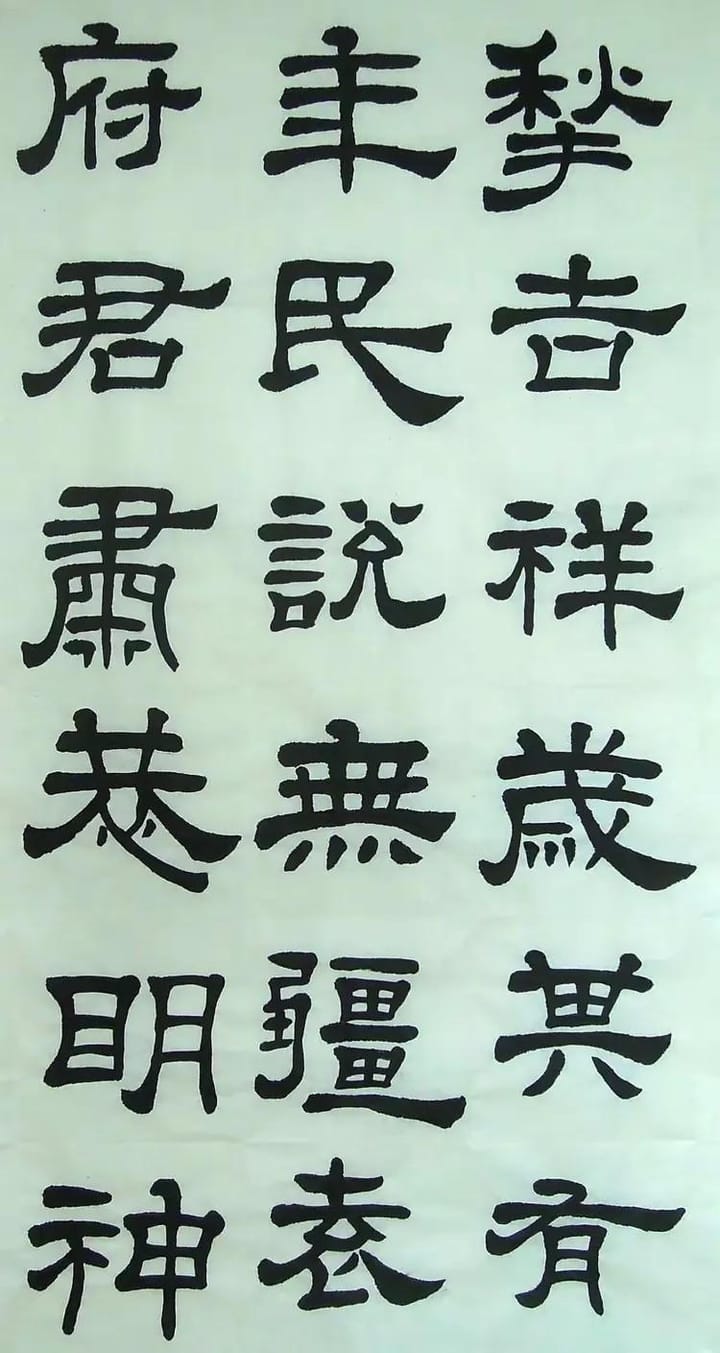 揫吉祥歲其有
年民說無疆袁
府君肅恭眀神